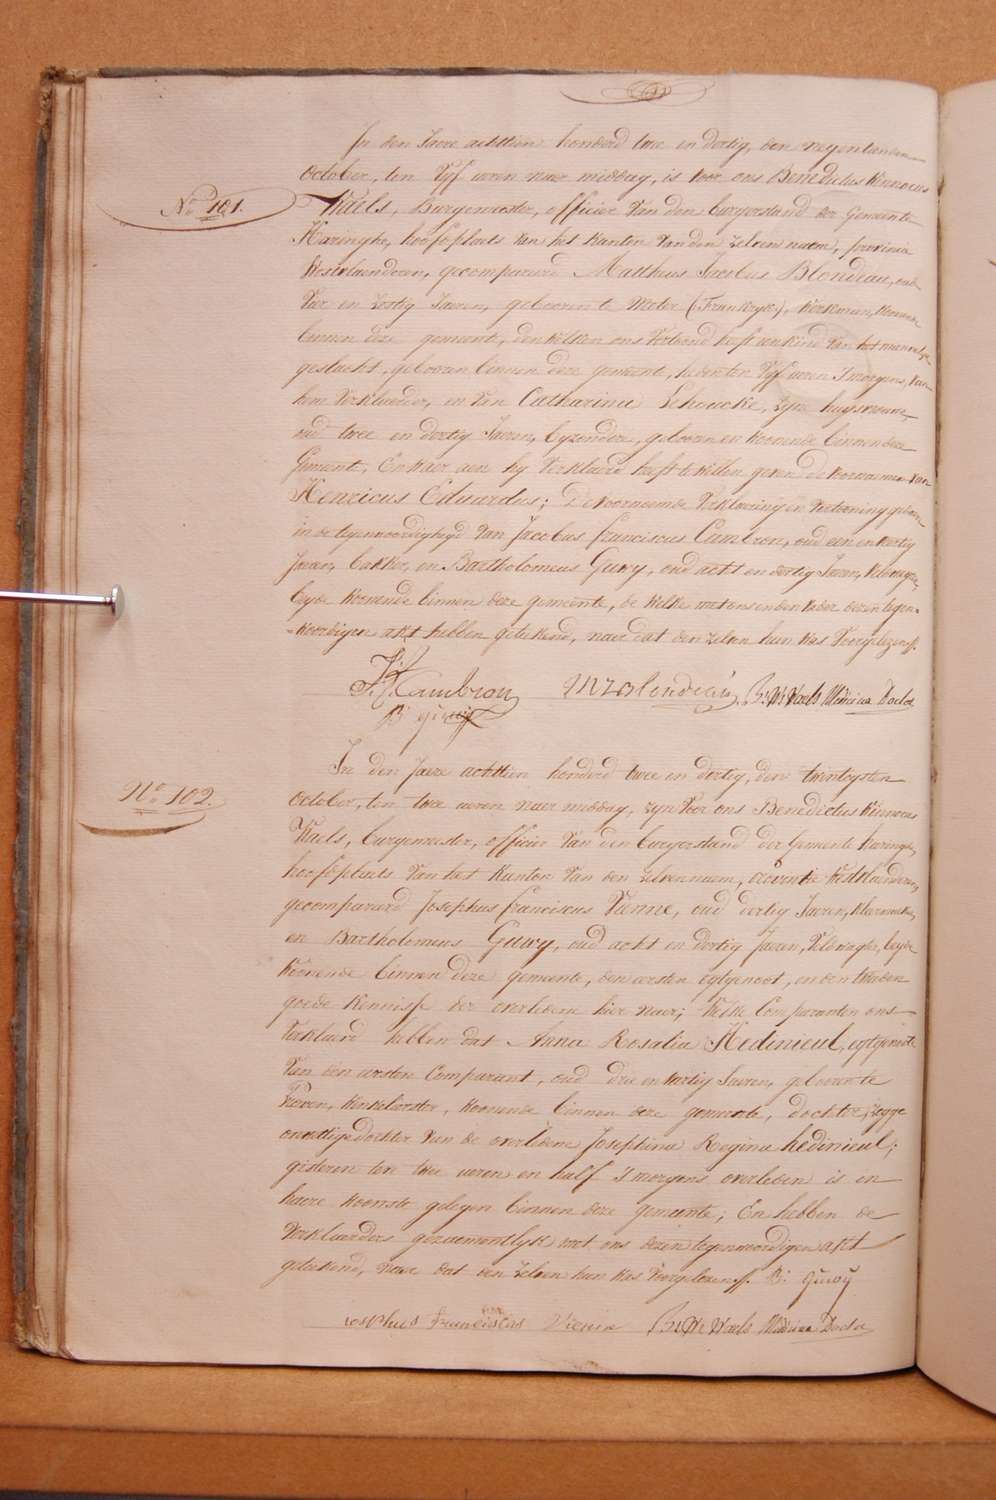 In den Jaere achttien honderd twee en dertig, den negentienden
October, ten vyf uren naer middag, is voor ons Benedictus Winnocus
No 101.
Waels, Burgemeester, officier van den burgerstand der Gemeente
Haringhe, hoofdplaets van het kanton van den zelven naem, provincie
Westvlaenderen, gecompareerd Mattheus Jacobus Blondeau, oud
vier en veertig Jaeren, geboren te (Frankryk), werkman, woonende
binnen deze gemeente, denwelken ons vertoond heeft een kind van het mannelyk
geslacht, geboren binnen deze gemeente, heden ten vyf uren s'morgens, van
hem verklaerder, en van Catharina Schoucke, zyne huysvrouw,
oud twee en dertig Jaeren, byzondere, geboren en woonende binnen deze
Gemeente, En waer aen hy verklaerd heeft te willen geven de voornaemen van
Henricus Eduardus; De voornoemde verklaering en vertooning gedaen
in de tegenwoordigheyd van Jacobus franciscus Cambron, oud een en veertig
Jaeren, bakker, en Bartholomeus Guwy, oud acht en dertig Jaeren, veldwagter,
beyde woonende binnen deze gemeente, de welke met ons en den vader dezen tegen-
-woordigen akt hebben geteekend, naer dat den zelven hun was voorgelezen.
J: f Cambron M J Blondeau B: W: Waels Medicina Doctor
B: guwy
In den Jaere achttien honderd twee en dertig, den twintigsten
No 102.
October, ten twee uren naer middag, zyn voor ons Benedictus Winnocus
Waels, burgemeester, officier van den burgerstand der Gemeente Haringhe,
hoofdplaets van het kanton van den zelven naem, provintie Westvlaenderen,
gecompareerd Josephus franciscus Vienne, oud dertig Jaeren, kleermaker,
en Bartholomeus Guwy, oud acht en dertig Jaeren, veldwagter, beyde
woonende binnen deze gemeente, den eersten egtgenoot, en den tweeden
goede kennisse der overledene hier naer; welke Comparanten ons
verklaerd hebben dat Anna Rosalia Hedinieul, egtgenoote
van den eersten Comparant, oud drie en veertig Jaeren, geboren te
Proven, winkelierster, woonende binnen deze gemeente, dochter, zegge
onwettige dochter van de overledene Josephina Regina hedinieul;
gisteren ten twee uren en half s'morgens overleden is in
haere woonste gelegen binnen deze gemeente; En hebben de
verklaerders gezaementlyk met ons dezen tegenwoordigen akt
geteekend, naer dat den zelven hun was voorgelezen. B: guwy
iosephus Franciscus Vienne B: W: Waels Medicina Doctor